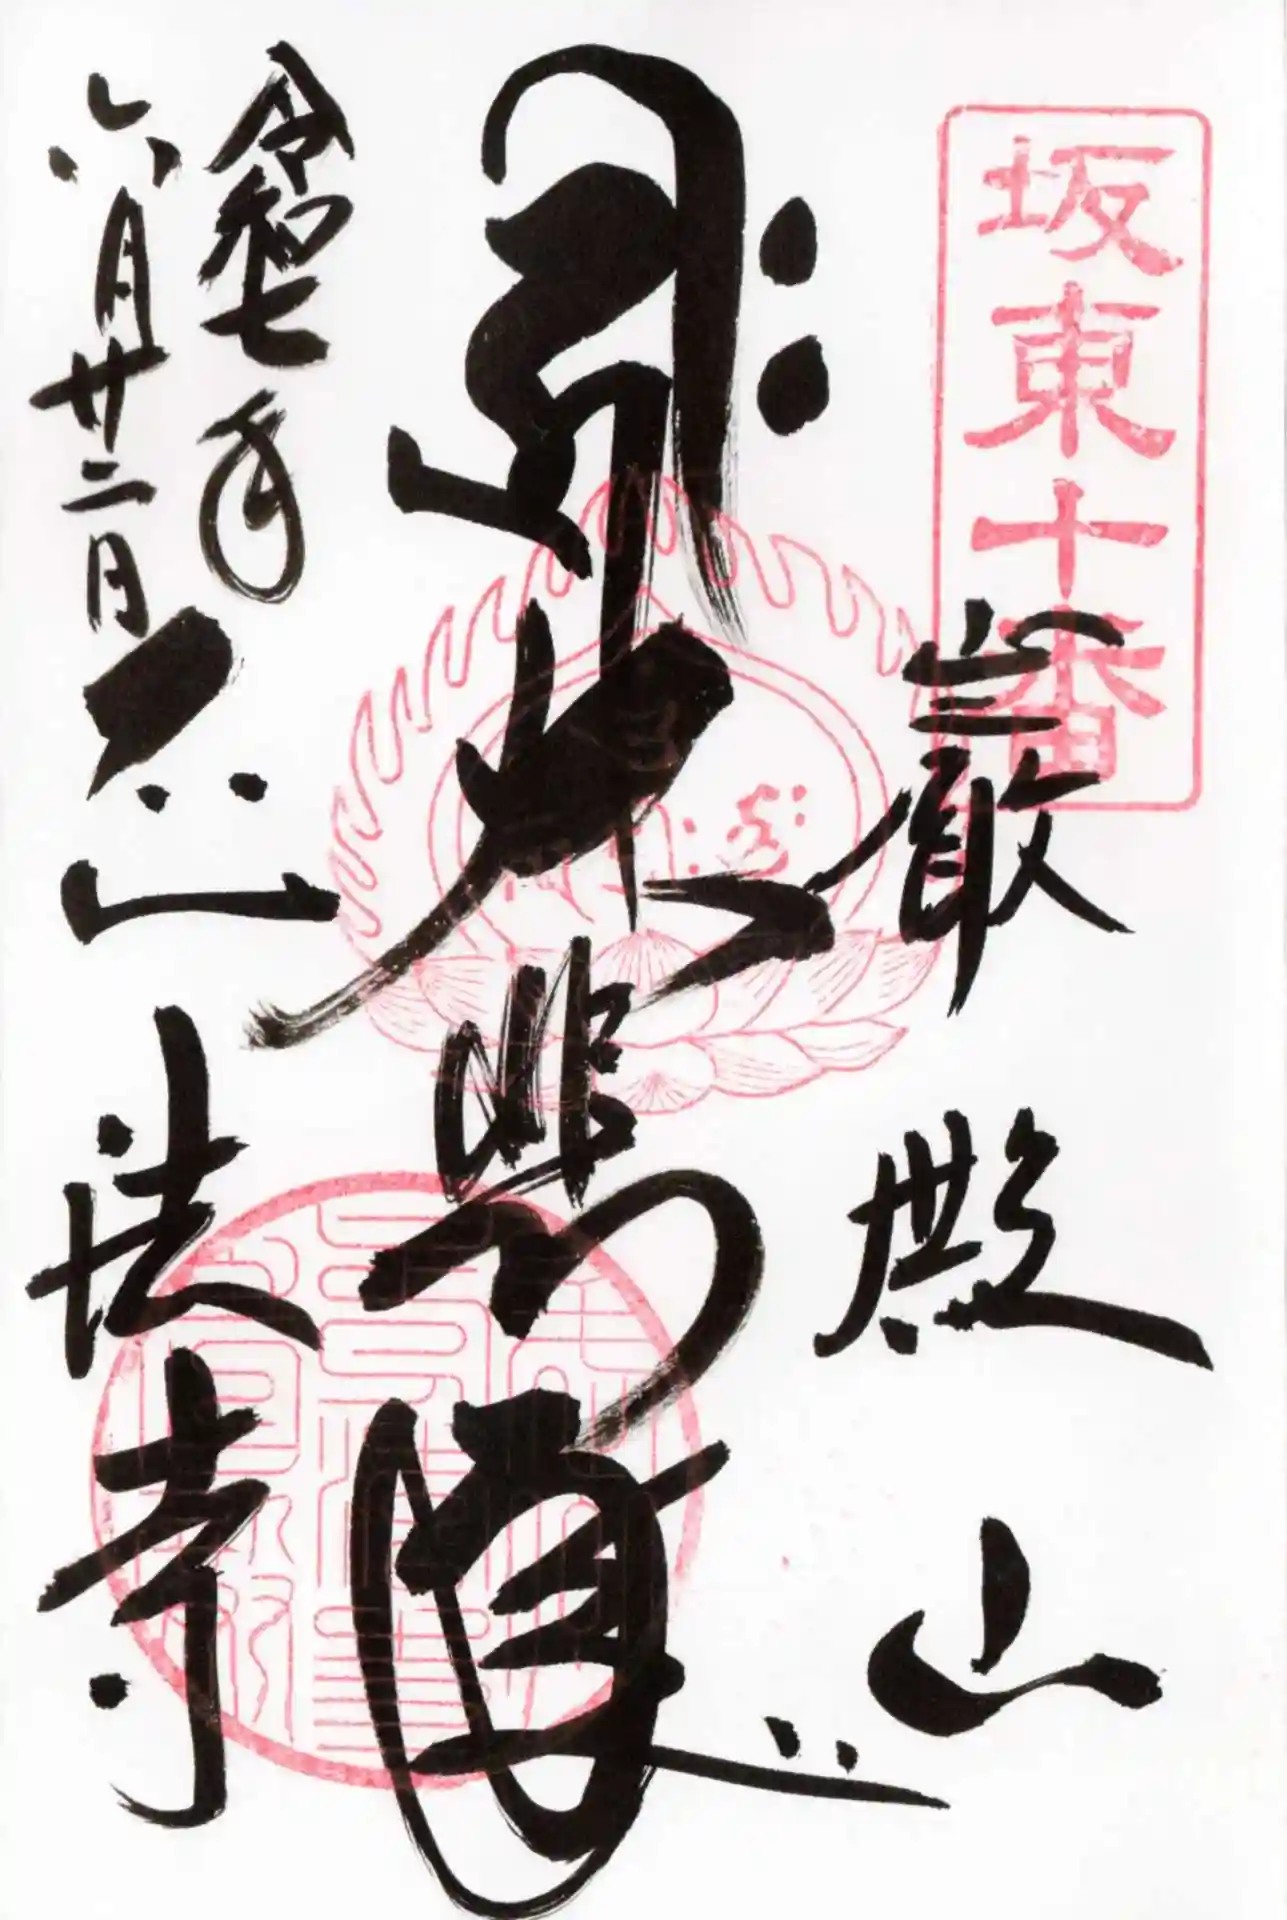 坂東十番
巌殿山
大悲
令和七年
六月廿二日
正法寺